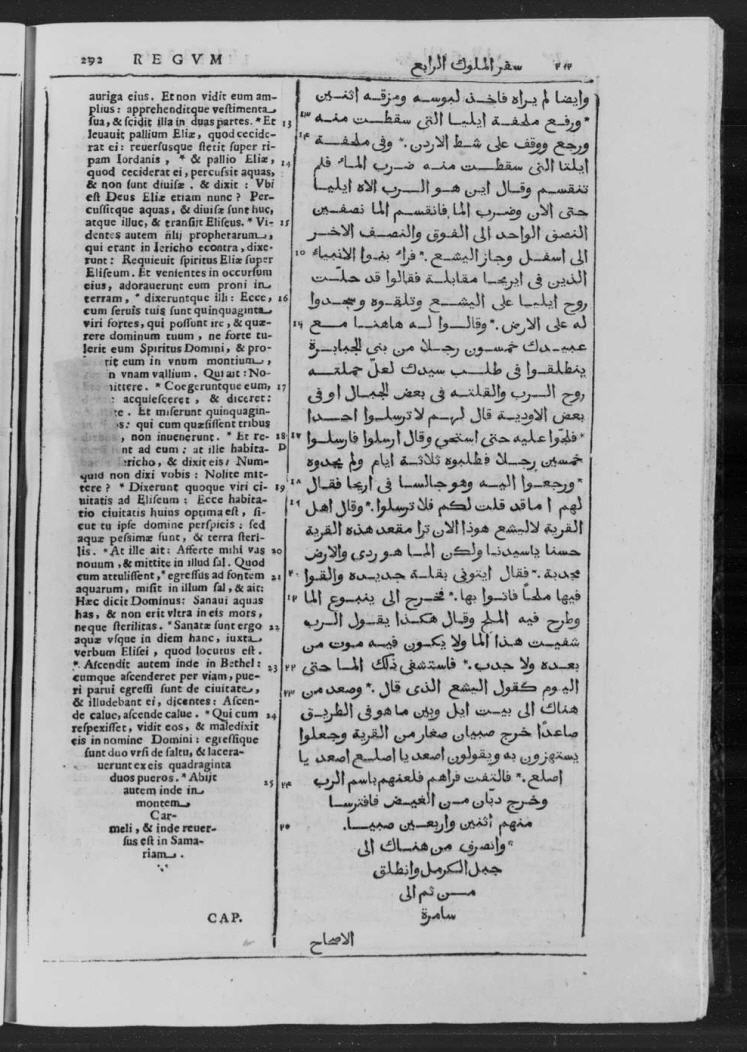 292 REGVM
auriga eius. Et non vidit eum am-
plius: apprehenditque vestimenta
sua, & scidit illa in duas partes. *Et 13
leuauit pallium Eliæ, quod cecide-
rat ei: reuersusque stetit super ri-
pam Iordanis, * & pallio Eliæ, 14
quod ceciderat ei, percussit aquas,
& non sunt diuisæ. & dixit: Vbi
est Deus Eliæ etiam nunc? Per-
cussitque aquas, & diuisæ sunt huc,
atque illuc, & transijt Eliseus. * Vi- 15
dentes autem filij prophetarum,
qui erant in Iericho econtra, dixe-
runt: Requieuit spiritus Eliæ super
Eliseum. Et venientes in occursum
eius, adorauerunt eum proni in
terram, * dixeruntque illi: Ecce, 16
cum seruis tuis sunt quinquaginta
viri fortes, qui possunt ire, & quæ-
rere dominum tuum, ne forte tu-
lerit eum Spiritus Domini, & pro-
rit eum in vnum montium,
n vnam vallium. Qui ait: No-
mittere. * Coegeruntque eum, 17
: acquiesceret, & diceret:
te. Et miserunt quinquagin-
s: qui cum quæsissent tribus
, non inuenerunt. * Et re- 18
nt ad eum: at ille habita- D
ericho, & dixit eis: Num-
quid non dixi vobis: Nolite mit-
tere? * Dixerunt quoque viri ci- 19
uitatis ad Eliseum: Ecce habita-
tio ciuitatis huius optima est, si-
cut tu ipse domine perspicis: sed
aquæ pessimæ sunt, & terra steri-
lis. *At ille ait: Afferte mihi vas 20
nouum, & mittite in illud sal. Quod
cum attulissent, *egressus ad fontem 21
aquarum, misit in illum sal, & ait:
Hæc dicit Dominus: Sanaui aquas
has, & non erit vltra in eis mors,
neque sterilitas. *Sanatæ sunt ergo 22
aquæ vsque in diem hanc, iuxta
verbum Elisei, quod locutus est.
*. Ascendit autem inde in Bethel: 23
cumque ascenderet per viam, pue-
ri parui egressi sunt de ciuitate,
& illudebant ei, dicentes: Ascen-
de calue, ascende calue. * Qui cum 24
respexisset, vidit eos, & maledixit
eis in nomine Domini: egressique
sunt duo vrsi de saltu, & lacera-
uerunt ex eis quadraginta
duos pueros. *Abijt 25
autem inde in
montem
Car-
meli, & inde reuer-
sus est in Sama-
riam.
CAP.
سفر الملوك الرابع ٢٩٢
وايضا لم يراه فاخذ لبوسه ومزقه اثنين
*ورفع ملحفة ايليا التى سقطت منه ١٣
ورجع ووقف على شط الاردن.* وفى ملحفة ١٤
ايليا التى سقطت منه ضرب الماء فلم
تنقسم وقال اين هو الرب الاه ايليا
حتى الان وضرب الما فانقسم الما نصفين
النصق الواحد الى الفوق والنصف الاخر
الى اسفل وجاز اليشع.* فراء بنوا الانبياء ١٥
الذين فى ايريحا مقابلة فقالوا قد حلّت
روح ايليا على اليشع وتلقوه وسجدوا
له على الارض.* وقالوا له هاهنا مع ١٦
عبيدك خمسون رجلا من بنى الجبابرة
ينطلقوا فى طلب سيدك لعلّ حملته
روح الرب والقلته فى بعض الجبال او فى
بعض الاودية قال لهم لا ترسلوا احدا
*فلجّوا عليه حتى استحى وقال ارسلوا فارسلوا ١٧
خمسين رجلا فطلبوه ثلاثة ايام ولم يجدوه
*ورجعوا اليه وهو جالسا فى اريحا فقال ١٨
لهم اما قد قلت لكم فلا ترسلوا.* وقال اهل ١٩
القرية لاليشع هوذا الان ترا مقعد هذه القرية
حسنا ياسيدنا ولكن الما هو ردى والارض
مجدبة.* فقال ايتونى بقلة جديده والقوا ٢٠
فيها ملحاً فاتوا بها.* فخرج الى ينبوع الما ٢١
وطرح فيه الملح وقال هكذا يقول الرب
شفيت هذا الما ولا يكون فيه موت من
بعده ولا جدب.* فاستشفى ذلك الما حتى ٢٢
اليوم كقول اليشع الذى قال.* وصعد من ٢٣
هناك الى بيت ايل وبين ما هو فى الطريق
صاعدًا خرج صبيان صغار من القرية وجعلوا
يستهزون به ويقولون اصعد يا اصلع اصعد يا
اصلع.* فالتفت فراهم فلعنهم باسم الرب ٢٤
وخرج دبّان من الغيض فافترسا
منهم اثنين واربعين صبيا.
*وانصرف من هناك الى ٢٥
جبل الكرمل وانطلق
من ثم الى
سامرة
الاصحاح